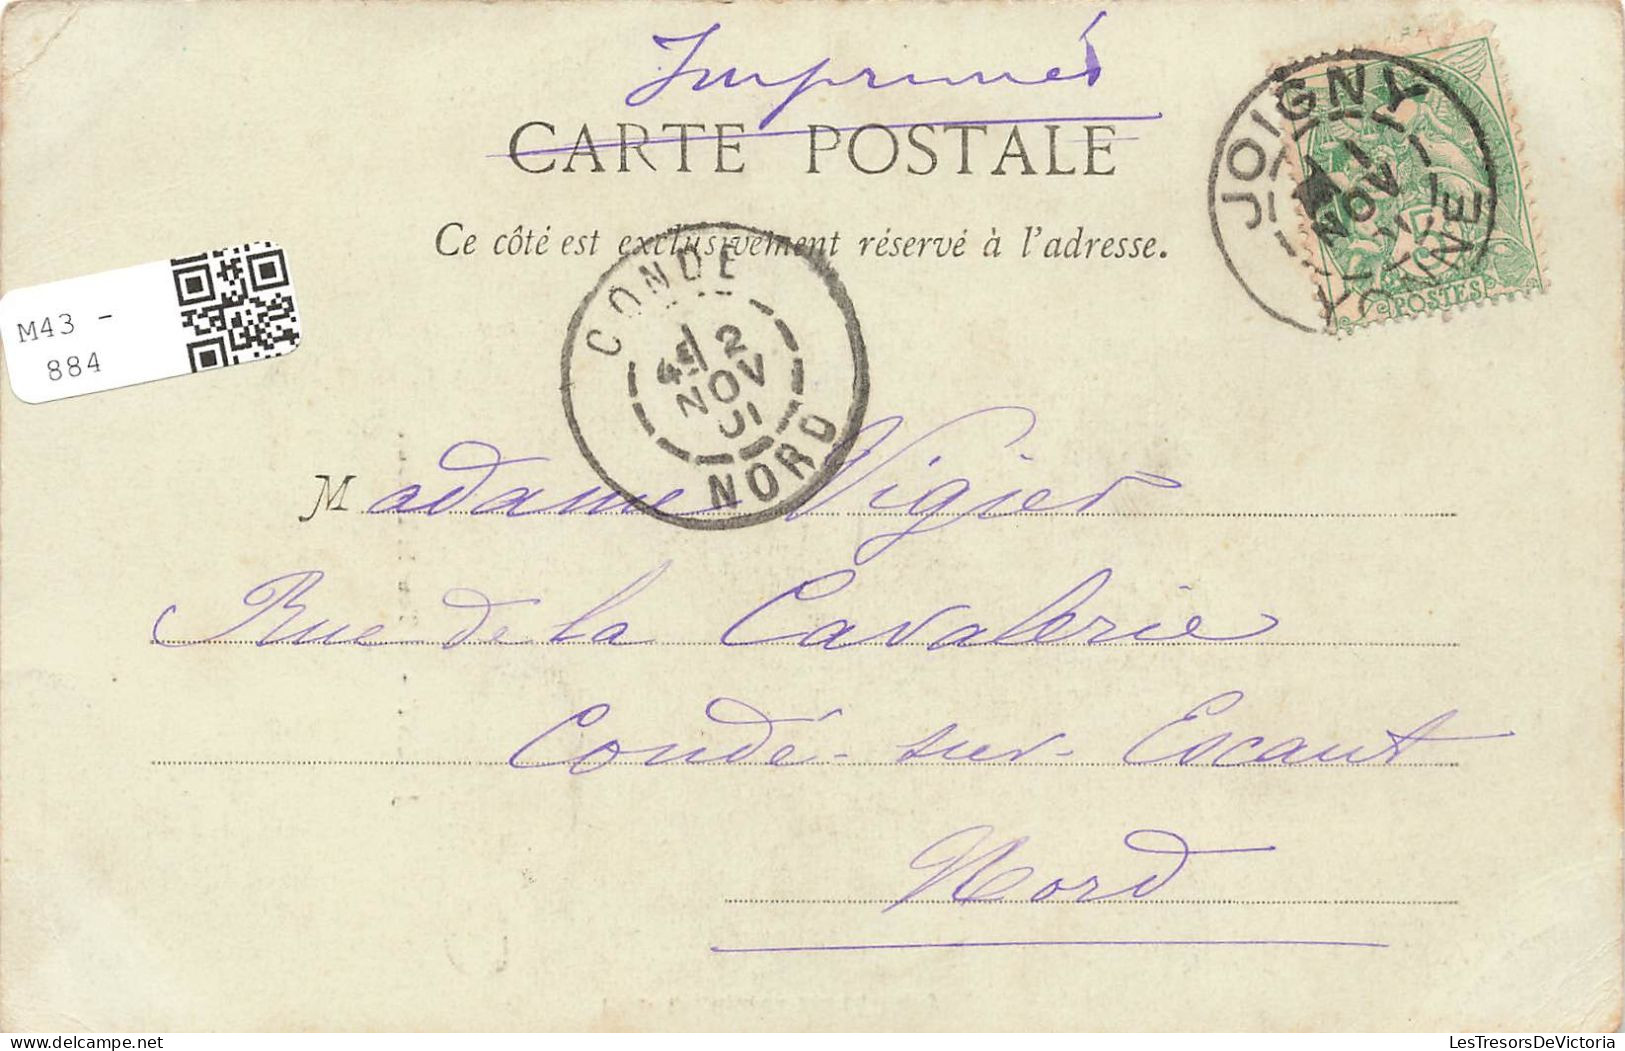 Imprimés
CARTE POSTALE
Ce côté est exclusivement réservé à l'adresse.
JOIGNY
NOV
YONNE
POSTES
CONDE
2
NOV
01
NORD
M43 -
884
Madame Vigier
Rue de la Cavalerie
Condé-sur-Escaut
Nord
LesTresorsDeVictoria